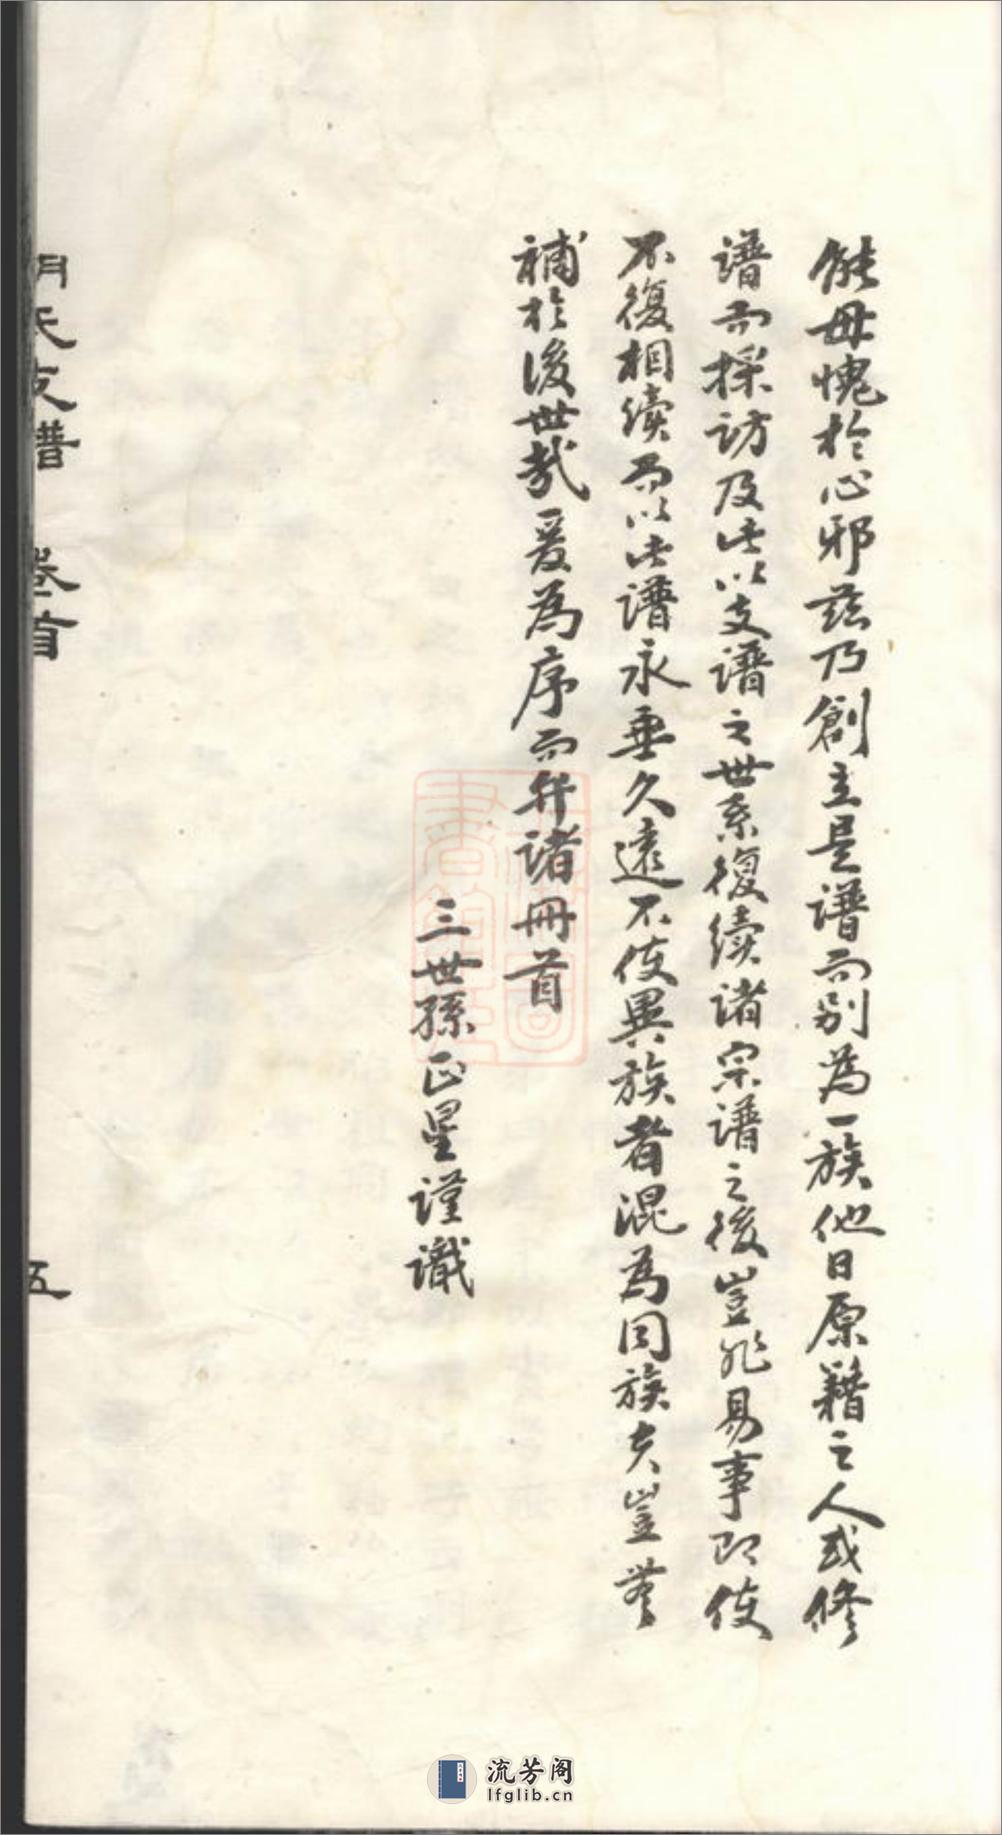 能毋愧於心邪茲乃創立是譜而別為一族他日原籍之人或修
譜而採訪及此以支譜之世系復續諸宗譜之後豈非易事即使
不復相續而以此譜永垂久遠不使異族者混為同族夫豈無
補於後世哉爰為序而弁諸冊首
三世孫正星謹識
氏支譜 卷首 五
流芳阁
lfglib.cn